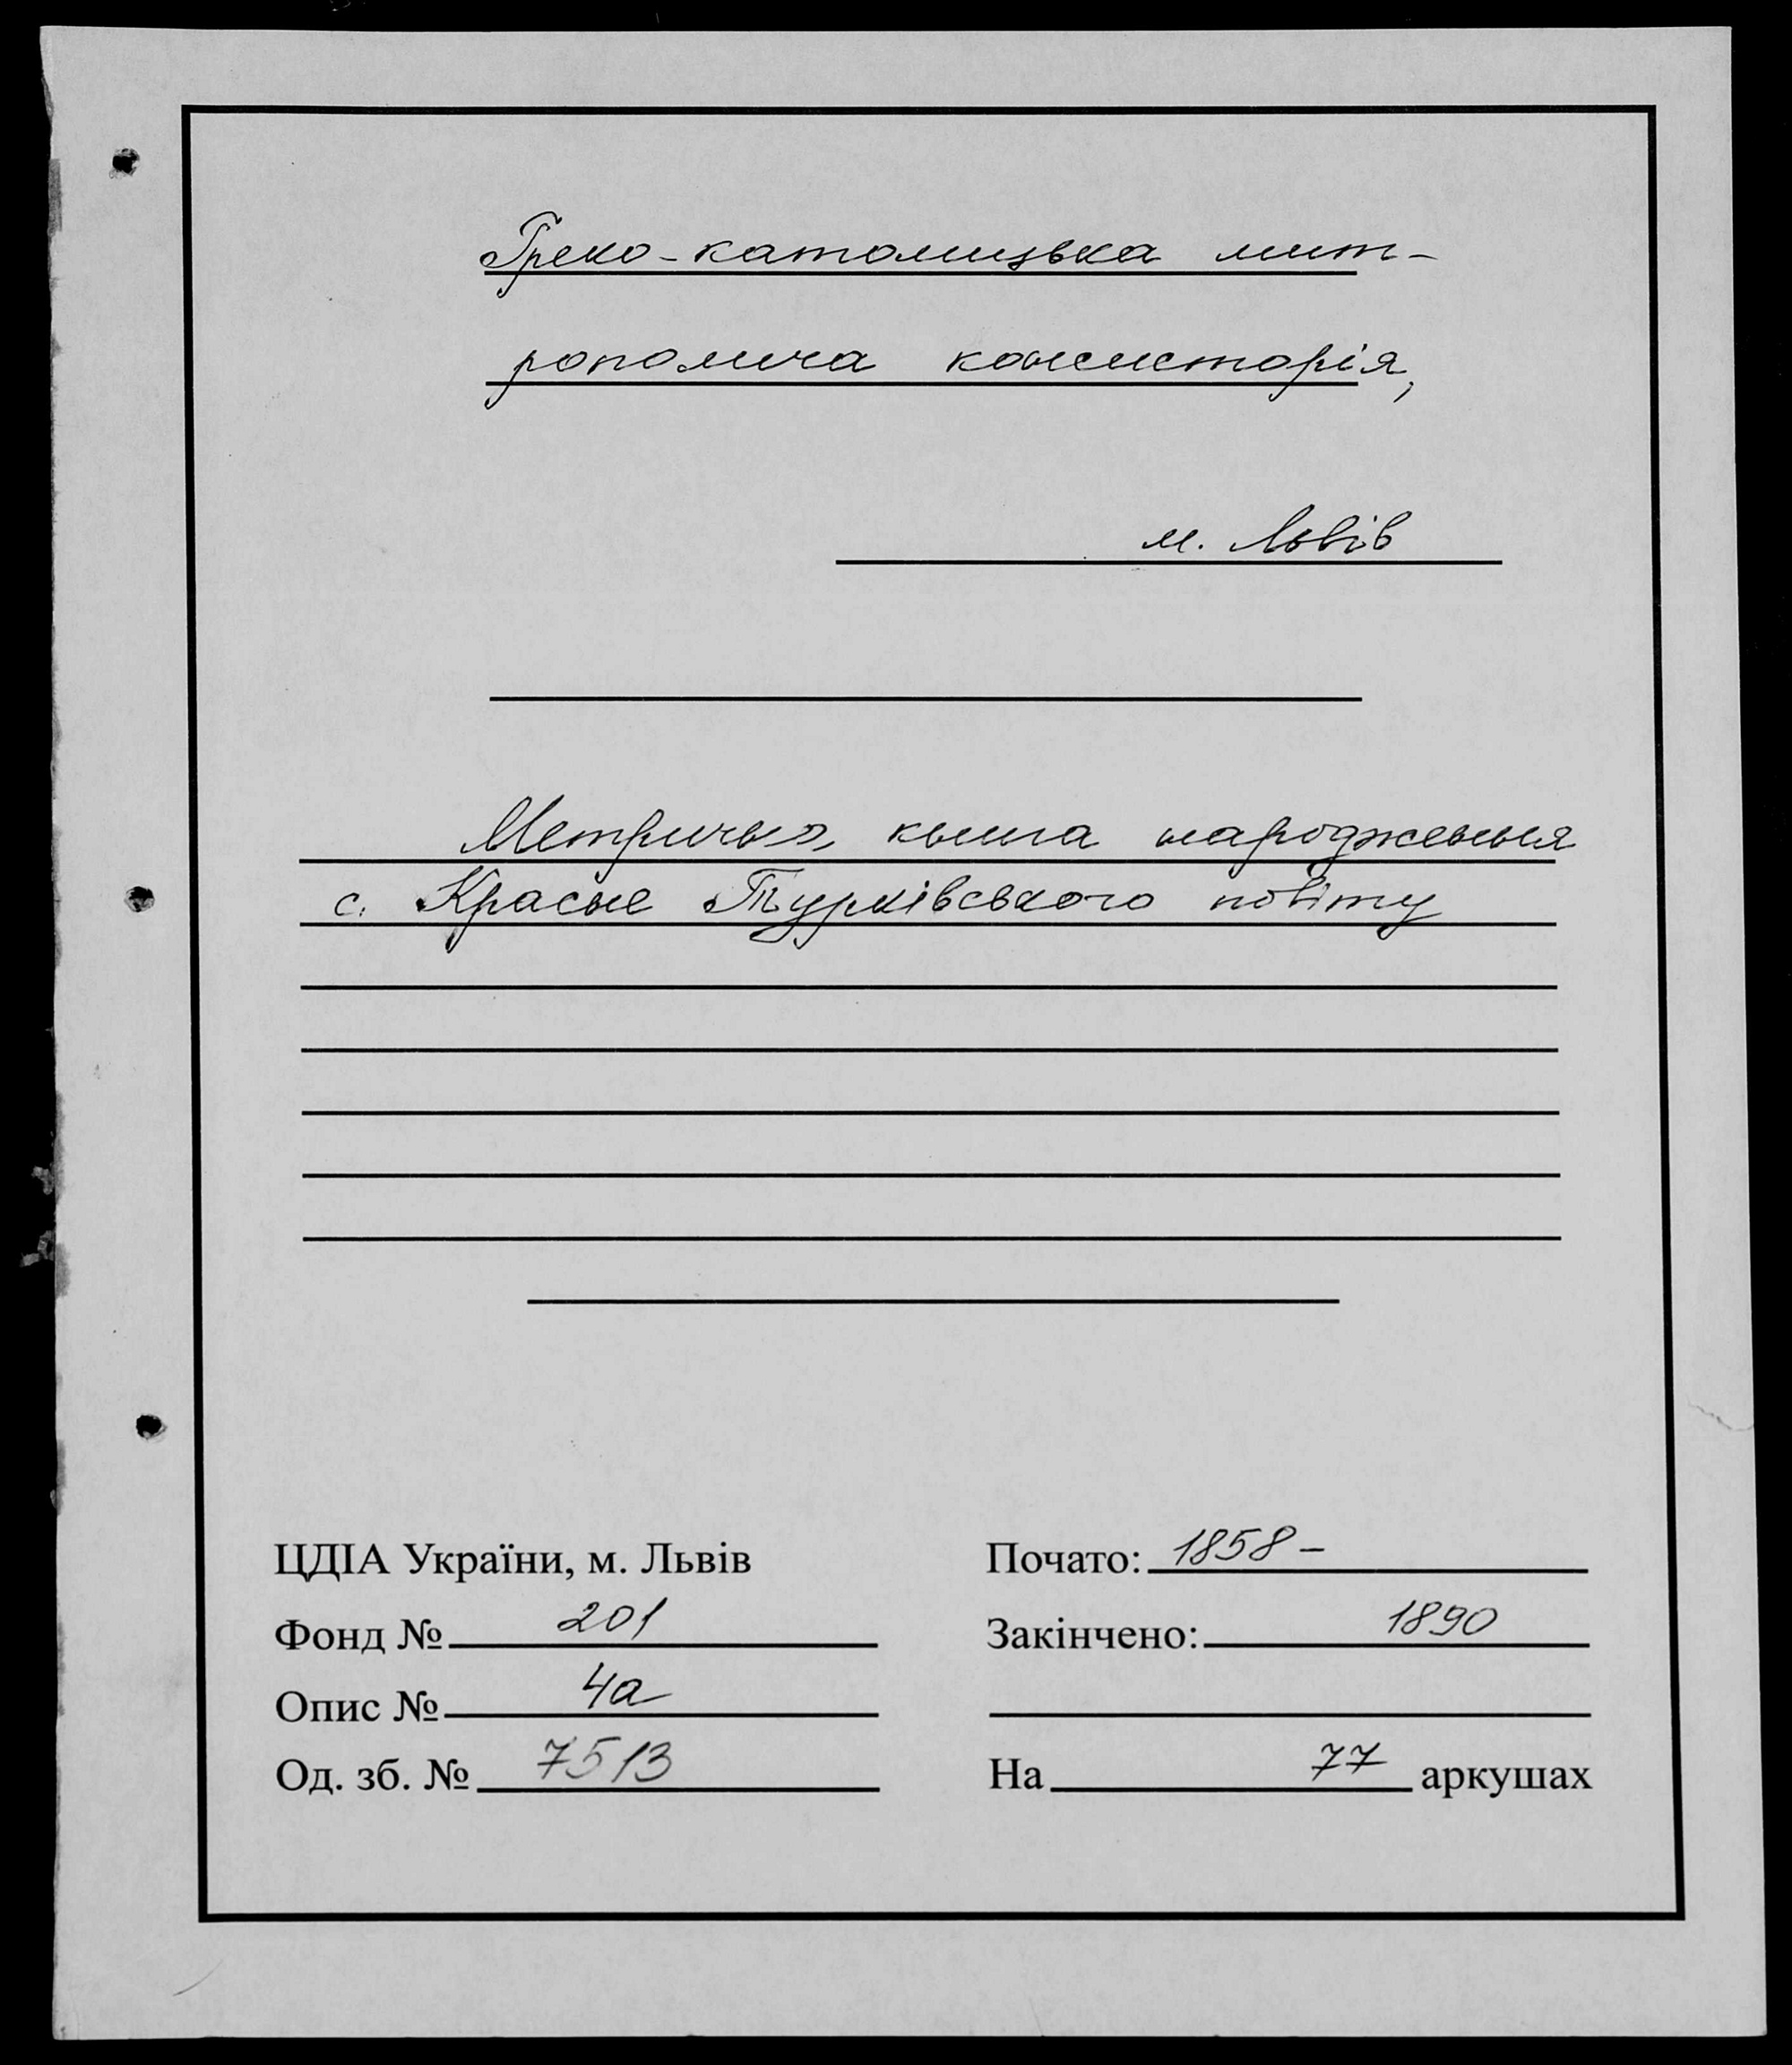 Греко-католицька мит-
рополича консисторія,
м. Львів
Метрична книга народження
с. Красне Турківського повіту
ЦДІА України, м. Львів
Фонд № 201
Опис № 4а
Од. зб. № 7513
Почато: 1858 –
Закінчено: 1890
На 77 аркушах